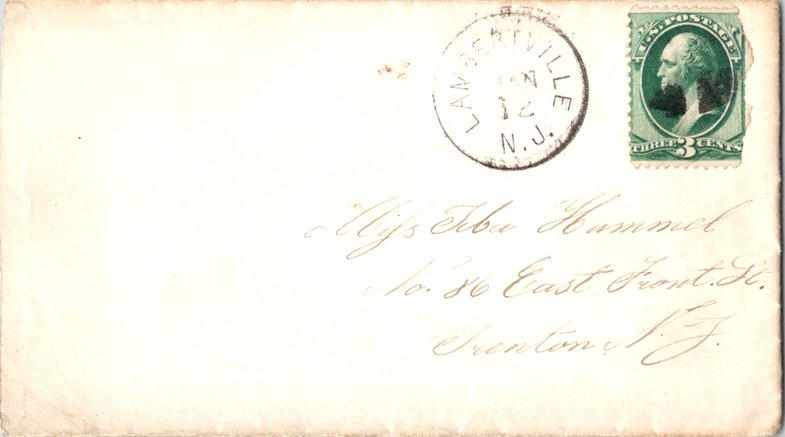 LAMBERTVILLE
JAN
12
N.J.
U.S. POSTAGE
THREE 3 CENTS
Miss Hummel
No. 86 East Front. St.
Trenton N.J.